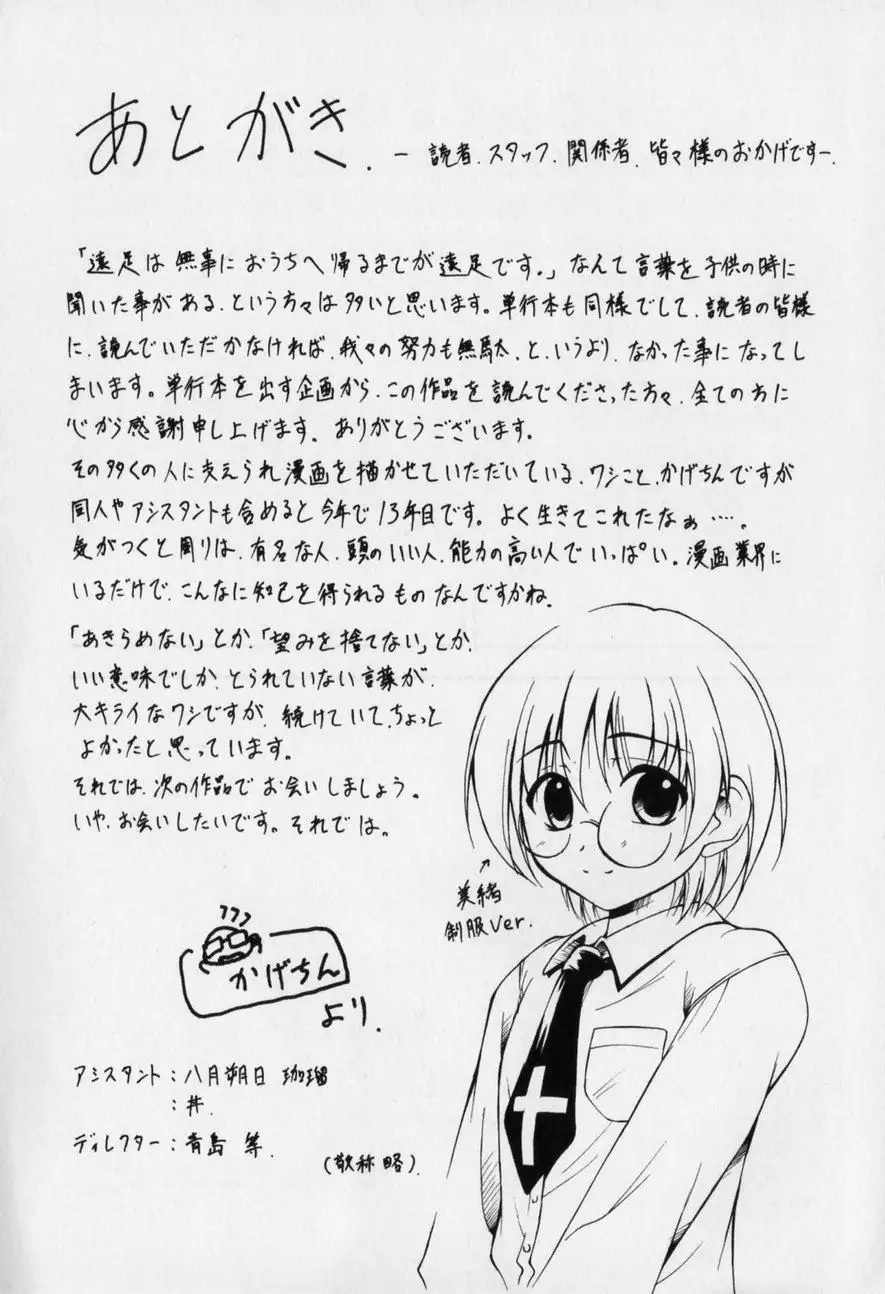 あとがき. ー 読者.スタッフ.関係者.皆々様のおかげですー.
「遠足は無事におうちへ帰るまでが遠足です。」なんて言葉を子供の時に
聞いた事がある.という方々は多いと思います。単行本も同様でして.読者の皆様
に.読んでいただかなければ.我々の努力も無駄.と.いうより.なかった事になってし
まいます。単行本を出す企画から.この作品を読んでくださった方々.全ての方に
心から感謝申し上げます。ありがとうございます。
その多くの人に支えられ漫画を描かせていただいている.ワシこと.かげちんですが
同人やアシスタントも含めると今年で13年目です。よく生きてこれたなぁ…。
気がつくと周りは.有名な人.頭のいい人.能力の高い人でいっぱい。漫画業界に
いるだけで.こんなに知己を得られるものなんですかね.
「あきらめない」とか.「望みを捨てない」とか.
いい意味でしか.とられていない言葉が.
大キライなワシですが.続けていて.ちょっと
よかったと思っています。
それでは.次の作品でお会いしましょう。
いや.お会いしたいです。それでは。
美緒
制服Ver.
かげちん
より.
アシスタント:八月朔日 珈瑠
:井.
ディレクター:青島 等.
(敬称略).